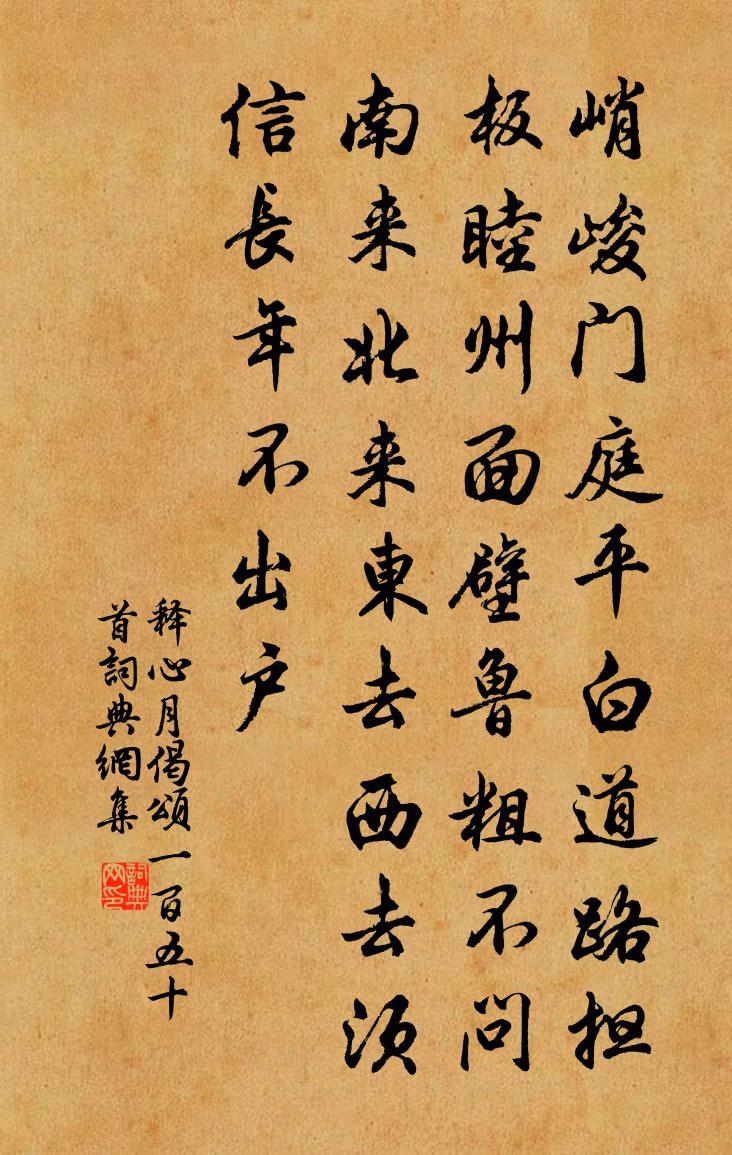 峭峻門庭平白道路担
板睦州面壁魯粗不問
南来北来東去西去須
信長年不出户
释心月偈頌一百五十
首詞典網集
詞典网印